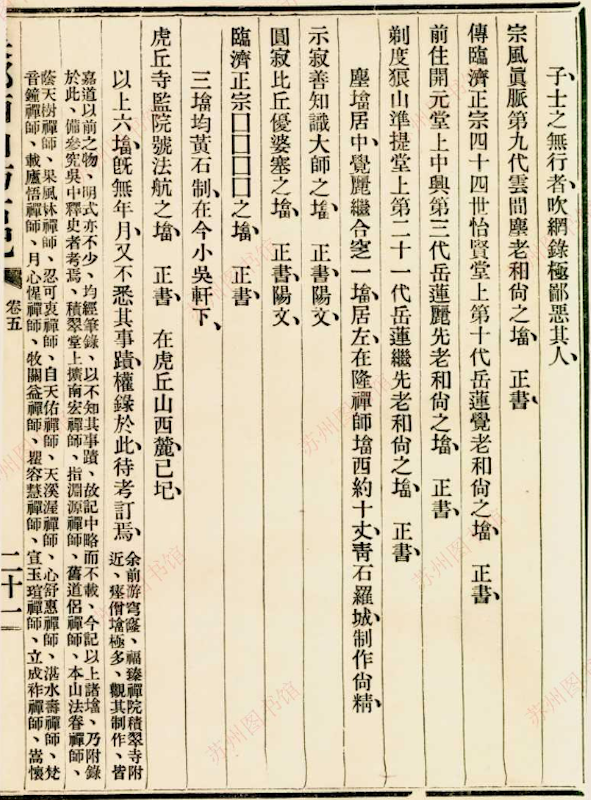 子士之無行者、吹網錄極鄙惡其人、
宗風眞脈第九代雲間塵老和尙之墖、正書
傳臨濟正宗四十四世怡賢堂上第十代岳蓮覺老和尙之墖、正書、
前住開元堂上中興第三代岳蓮麗先老和尙之墖、正書、
剃度狠山準提堂上第二十一代岳蓮繼先老和尙之墖、正書、
塵墖居中、覺麗繼合窆一墖、居左、在隆禪師墖西約十丈、靑石羅城、制作尙精、
示寂善知識大師之墖、正書陽文、
圓寂比丘優婆塞之墖、正書陽文、
臨濟正宗囗囗囗囗之墖、正書、
三墖均黃石制、在今小吳軒下、
虎丘寺監院號法航之墖、正書 在虎丘山西麓、已圮、
以上六墖、旣無年月、又不悉其事蹟、權錄於此、待考訂焉、
余前游穹窿、福臻禪院積翠寺附
近、瘞僧墖極多、觀其制作、皆
嘉道以前之物、明式亦不少、均經筆錄、以不知其事蹟、故記中略而不載、今記以上諸墖、乃附錄
於此、備參究吳中釋史者考焉、積翠堂上擴南宏禪師、指淵源禪師、舊道侶禪師、本山法眷禪師、
蔭天樹禪師、杲風林禪師、忍可衷禪師、自天佑禪師、天溪渥禪師、心舒惠禪師、湛水壽禪師、梵
音鐘禪師、載廬悟禪師、月心惺禪師、牧關益禪師、瞿容慧禪師、宣玉瑄禪師、立成祚禪師、嵩懷
卷五
二十一
苏州图书馆